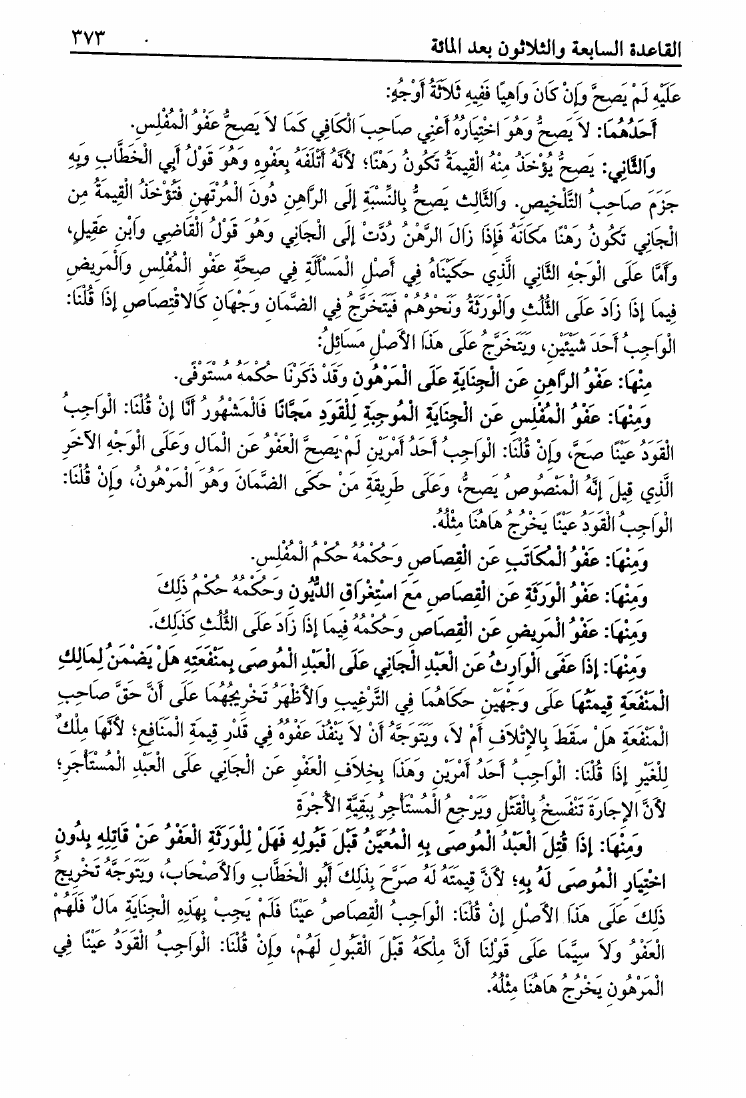 القاعدة السابعة والثلاثون بعد المائة ٣٧٣
عَلَيْهِ لَمْ يَصِحَّ وَإِنْ كَانَ وَاهِيًا فَفِيهِ ثَلَاثَةُ أَوْجُهٍ:
أَحَدُهُمَا: لاَ يَصِحُّ وَهُوَ اخْتِيَارُهُ أَعْنِي صَاحِبَ الْكَافِي كَمَا لاَ يَصِحُّ عَفْوُ الْمُفْلِسِ.
وَالثَّانِي: يَصِحُّ يُؤْخَذُ مِنْهُ الْقِيمَةُ تَكُونُ رَهْنًا؛ لأَنَّهُ أَتْلَفَهُ بِعَفْوِهِ وَهُوَ قَوْلُ أَبِي الْخَطَّابِ وَبِهِ
جَزَمَ صَاحِبُ التَّلْخِيصِ. وَالثَّالِث يَصِحُّ بِالنِّسْبَةِ إِلَى الرَّاهِنِ دُونَ الْمُرْتَهِنِ فَتُؤْخَذُ الْقِيمَةُ مِن
الْجَانِي تَكُونُ رَهْنًا مَكَانَهُ فَإِذَا زَالَ الرَّهْنُ رُدَّتْ إِلَى الْجَانِي وَهُوَ قَوْلُ الْقَاضِي وَابْنِ عَقِيلٍ،
وَأَمَّا عَلَى الْوَجْهِ الثَّانِي الَّذِي حَكَيْنَاهُ فِي أَصْلِ الْمَسْأَلَةِ فِي صِحَّةِ عَفْوِ الْمُفْلِسِ وَالْمَرِيضِ
فِيمَا إِذَا زَادَ عَلَى الثُّلُثِ وَالْوَرَثَةُ وَنَحْوُهُمْ فَيَتَخَرَّجُ فِي الضَّمَانِ وَجْهَانِ كَالاقْتِصَاصِ إِذَا قُلْنَا:
الْوَاجِبُ أَحَدَ شَيْئَيْنِ، وَيَتَخَرَّجُ عَلَى هَذَا الأَصْلِ مَسَائِلُ:
مِنْهَا: عَفْوُ الرَّاهِنِ عَنِ الْجِنَايَةِ عَلَى الْمَرْهُونِ وَقَدْ ذَكَرْنَا حُكْمَهُ مُسْتَوْفًى.
وَمِنْهَا: عَفْوُ الْمُفْلِسِ عَنِ الْجِنَايَةِ الْمُوجِبَةِ لِلْقَوَدِ مَجَّانًا فَالْمَشْهُورُ أَنَّا إِنْ قُلْنَا: الْوَاجِبُ
الْقَوَدُ عَيْنًا صَحَّ، وَإِنْ قُلْنَا: الْوَاجِبُ أَحَدُ أَمْرَيْنِ لَمْ يَصِحَّ الْعَفْوُ عَنِ الْمَالِ وَعَلَى الْوَجْهِ الآخَرِ
الَّذِي قِيلَ إِنَّهُ الْمَنْصُوصُ يَصِحُّ، وَعَلَى طَرِيقَةِ مَنْ حَكَى الضَّمَانَ وَهُوَ الْمَرْهُونُ، وَإِنْ قُلْنَا:
الْوَاجِبُ الْقَوَدُ عَيْنًا يَخْرُجُ هَاهُنَا مِثْلُهُ.
وَمِنْهَا: عَفْوُ الْمُكَاتَبِ عَنِ الْقِصَاصِ وَحُكْمُهُ حُكْمُ الْمُفْلِسِ.
وَمِنْهَا: عَفْوُ الْوَرَثَةِ عَنِ الْقِصَاصِ مَعَ اسْتِغْرَاقِ الدُّيُونِ وَحُكْمُهُ حُكْمُ ذَلِكَ
وَمِنْهَا: عَفْوُ الْمَرِيضِ عَنِ الْقِصَاصِ وَحُكْمُهُ فِيمَا إِذَا زَادَ عَلَى الثُّلُثِ كَذَلِكَ.
وَمِنْهَا: إِذَا عَفَى الْوَارِثُ عَنِ الْعَبْدِ الْجَانِي عَلَى الْعَبْدِ الْمُوصَى بِمَنْفَعَتِهِ هَلْ يَضْمَنُ لِمَالِكِ
الْمَنْفَعَةِ قِيمَتُهَا عَلَى وَجْهَيْنِ حَكَاهُمَا فِي التَّرْغِيبِ وَالأَظْهَرُ تَخْرِيجُهُمَا عَلَى أَنَّ حَقَّ صَاحِبِ
الْمَنْفَعَةِ هَلْ سَقَطَ بِالإِتْلَافِ أَمْ لاَ، وَيَتَوَجَّهُ أَنْ لاَ يَنْفُذَ عَفْوُهُ فِي قَدْرِ قِيمَةِ الْمَنَافِعِ؛ لأَنَّهَا مِلْكٌ
لِلْغَيْرِ إِذَا قُلْنَا: الْوَاجِبُ أَحَدُ أَمْرَيْنِ وَهَذَا بِخِلَافِ الْعَفْوِ عَنِ الْجَانِي عَلَى الْعَبْدِ الْمُسْتَأْجَرِ؛
لأَنَّ الإِجَارَةَ تَنْفَسِخُ بِالْقَتْلِ وَيَرْجِعُ الْمُسْتَأْجِرُ بِبَقِيَّةِ الأُجْرَةِ
وَمِنْهَا: إِذَا قُتِلَ الْعَبْدُ الْمُوصَى بِهِ الْمُعَيَّنُ قَبْلَ قَبُولِهِ فَهَلْ لِلْوَرَثَةِ الْعَفْوُ عَنْ قَاتِلِهِ بِدُونِ
اخْتِيَارِ الْمُوصَى لَهُ بِهِ؛ لأَنَّ قِيمَتَهُ لَهُ صَرَّحَ بِذَلِكَ أَبُو الْخَطَّابِ وَالأَصْحَابُ، وَيَتَوَجَّهُ تَخْرِيجُ
ذَلِكَ عَلَى هَذَا الأَصْلِ إِنْ قُلْنَا: الْوَاجِبُ الْقِصَاصُ عَيْنًا فَلَمْ يَجِبْ بِهَذِهِ الْجِنَايَةِ مَالٌ فَلَهُمْ
الْعَفْوُ وَلاَ سِيَّمَا عَلَى قَوْلِنَا أَنَّ مِلْكَهُ قَبْلَ الْقَبُولِ لَهُمْ، وَإِنْ قُلْنَا: الْوَاجِبُ الْقَوَدُ عَيْنًا فِي
الْمَرْهُونِ يَخْرُجُ هَاهُنَا مِثْلُهُ.